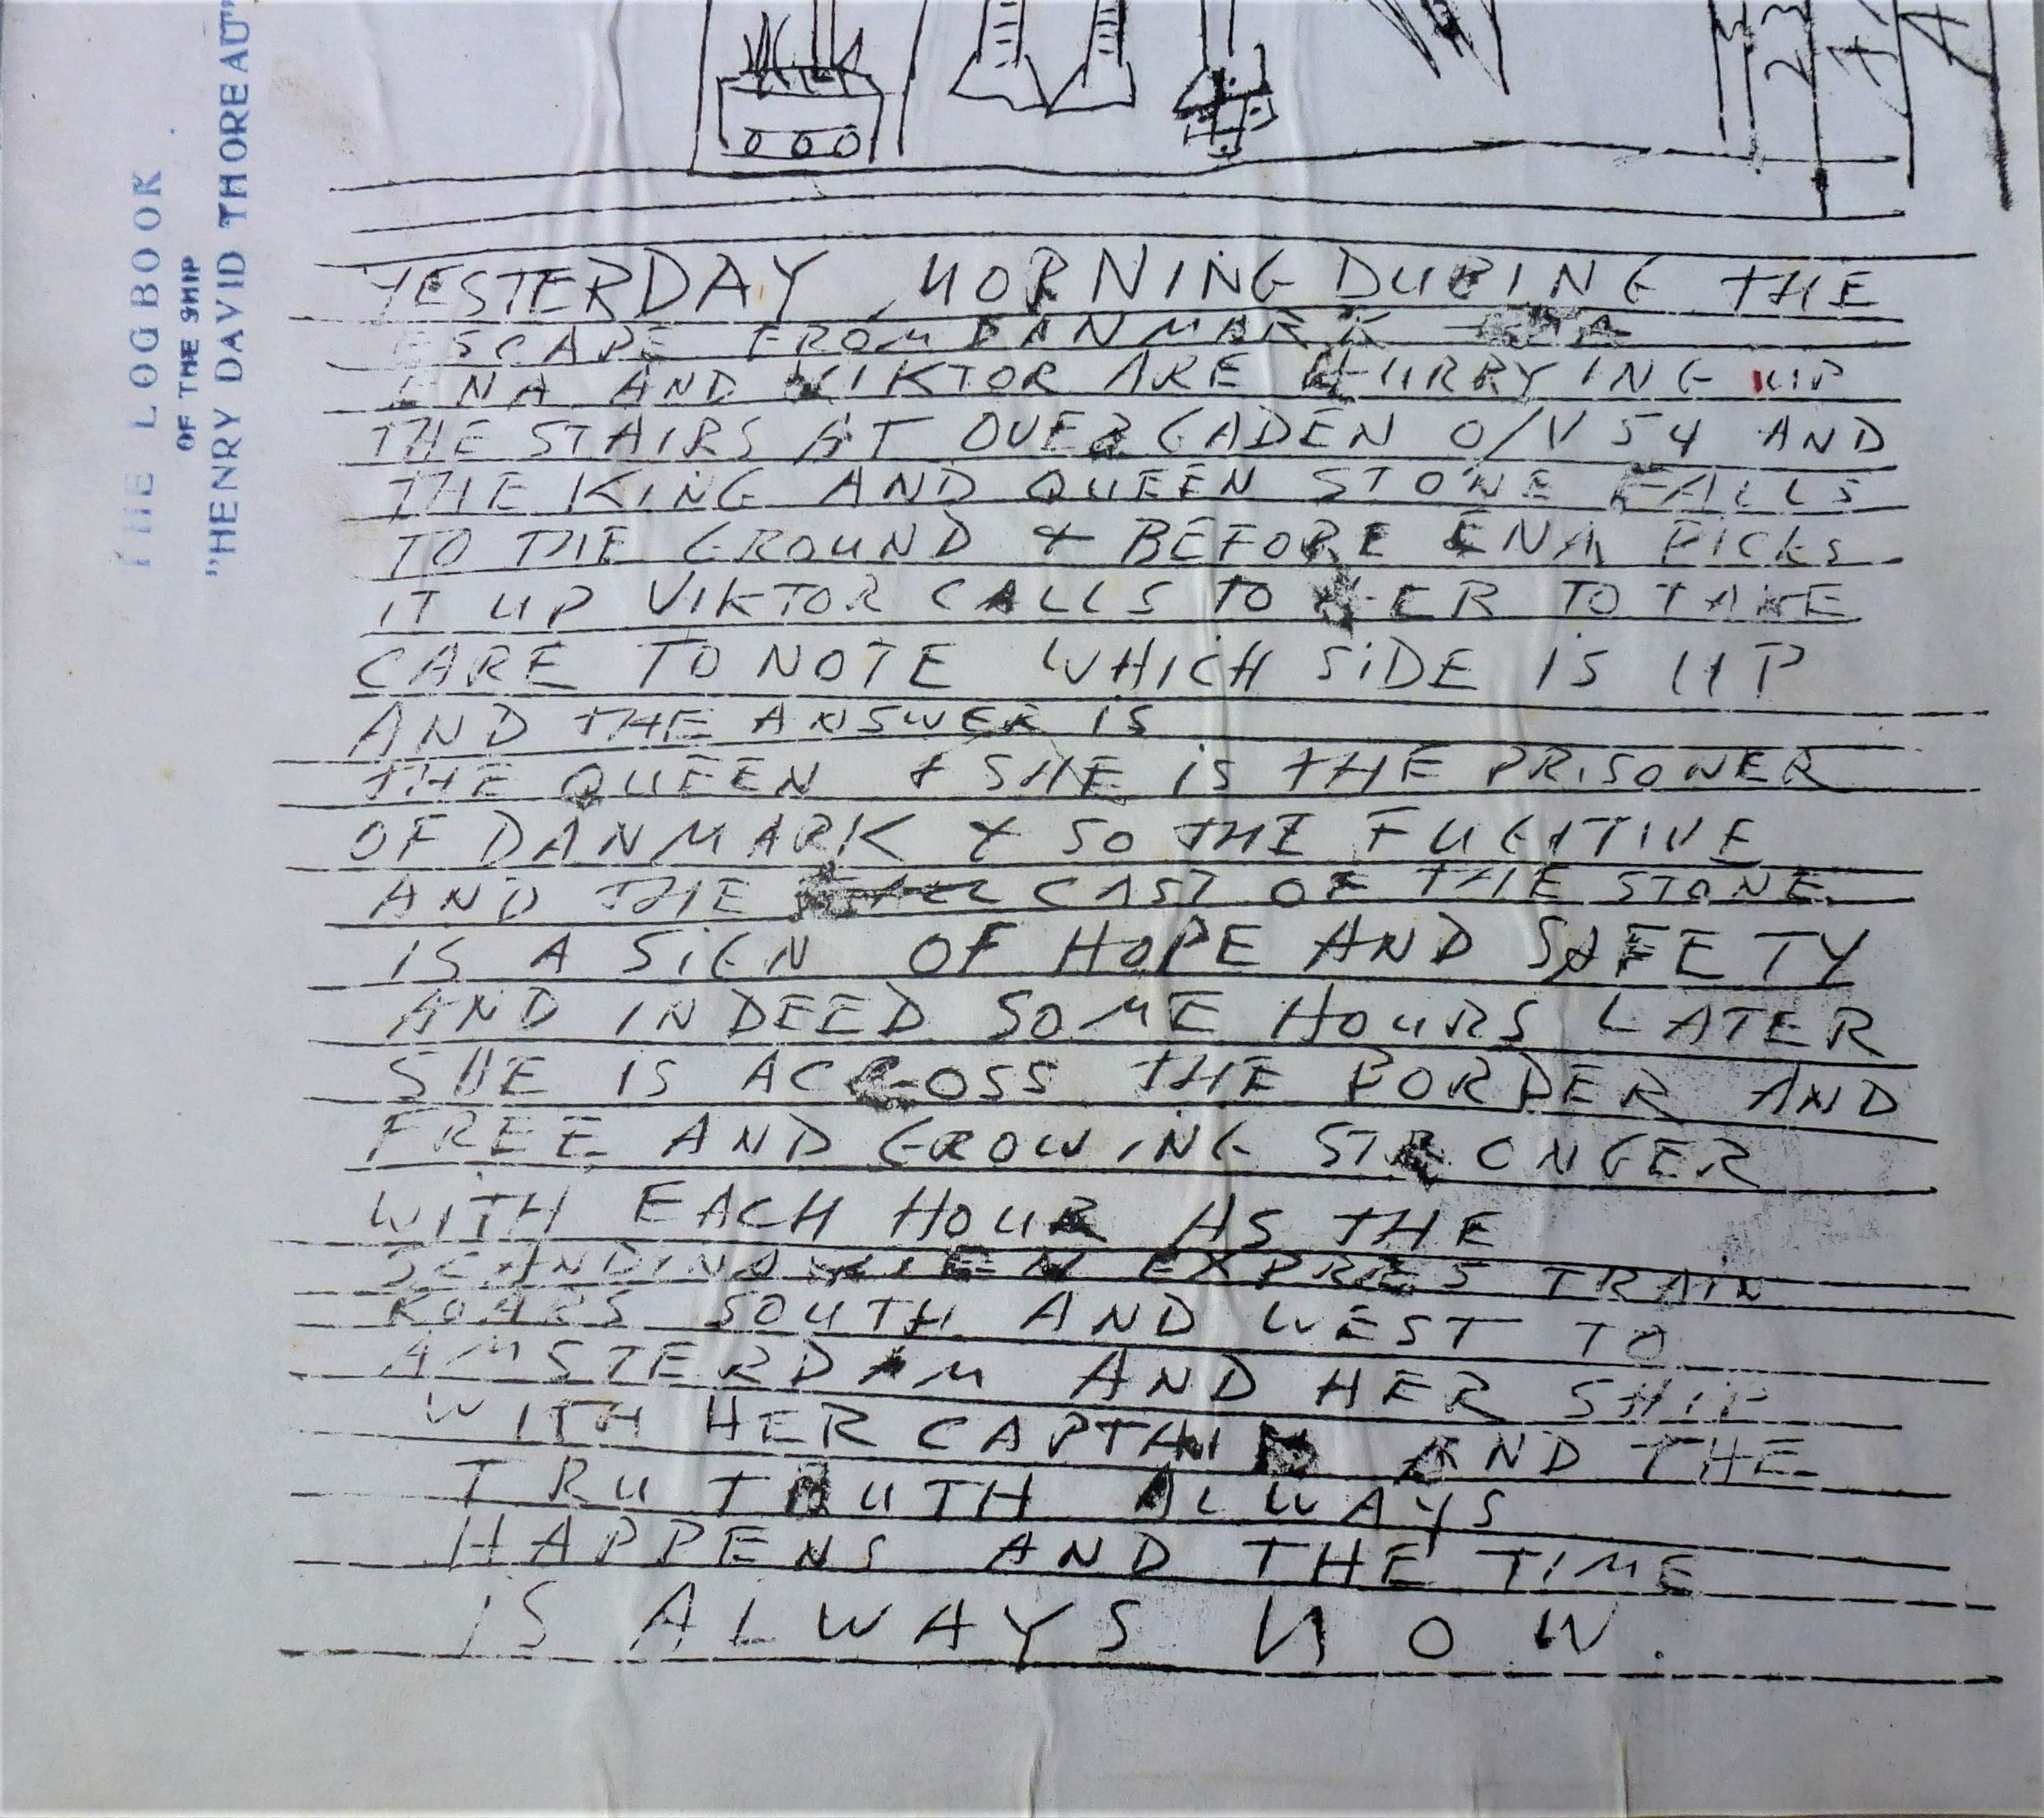 THE LOGBOOK
OF THE SHIP
"HENRY DAVID THOREAU"
23
YESTERDAY MORNING DURING THE
ESCAPE FROM DANMARK
ENA AND VIKTOR ARE HURRYING UP
THE STAIRS AT OVERGADEN O/V 54 AND
THE KING AND QUEEN STONE FALLS
TO THE GROUND + BEFORE ENA PICKS
IT UP VIKTOR CALLS TO HER TO TAKE
CARE TO NOTE WHICH SIDE IS UP
AND THE ANSWER IS
THE QUEEN + SHE IS THE PRISONER
OF DANMARK + SO THE FUGITIVE
AND THE CAST OF THE STONE
IS A SIGN OF HOPE AND SAFETY
AND INDEED SOME HOURS LATER
SHE IS ACROSS THE BORDER AND
FREE AND GROWING STRONGER
WITH EACH HOUR AS THE
SCANDINAVIEN EXPRES TRAIN
ROARS SOUTH AND WEST TO
AMSTERDAM AND HER SHIP
WITH HER CAPTAIN AND THE
TRU TRUTH ALWAYS
HAPPENS AND THE TIME
IS ALWAYS NOW.